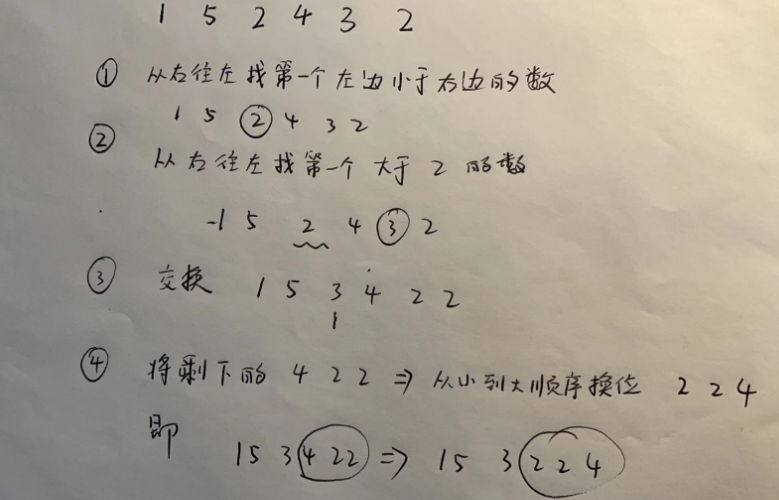 1 5 2 4 3 2
① 从右往左找第一个左边小于右边的数
1 5 2 4 3 2
② 从右往左找第一个大于2的数
-1 5 2 4 3 2
③ 交换 1 5 3 4 2 2
④ 将剩下的 4 2 2 ⇒ 从小到大顺序换位 2 2 4
即 1 5 3 4 2 2 ⇒ 1 5 3 2 2 4